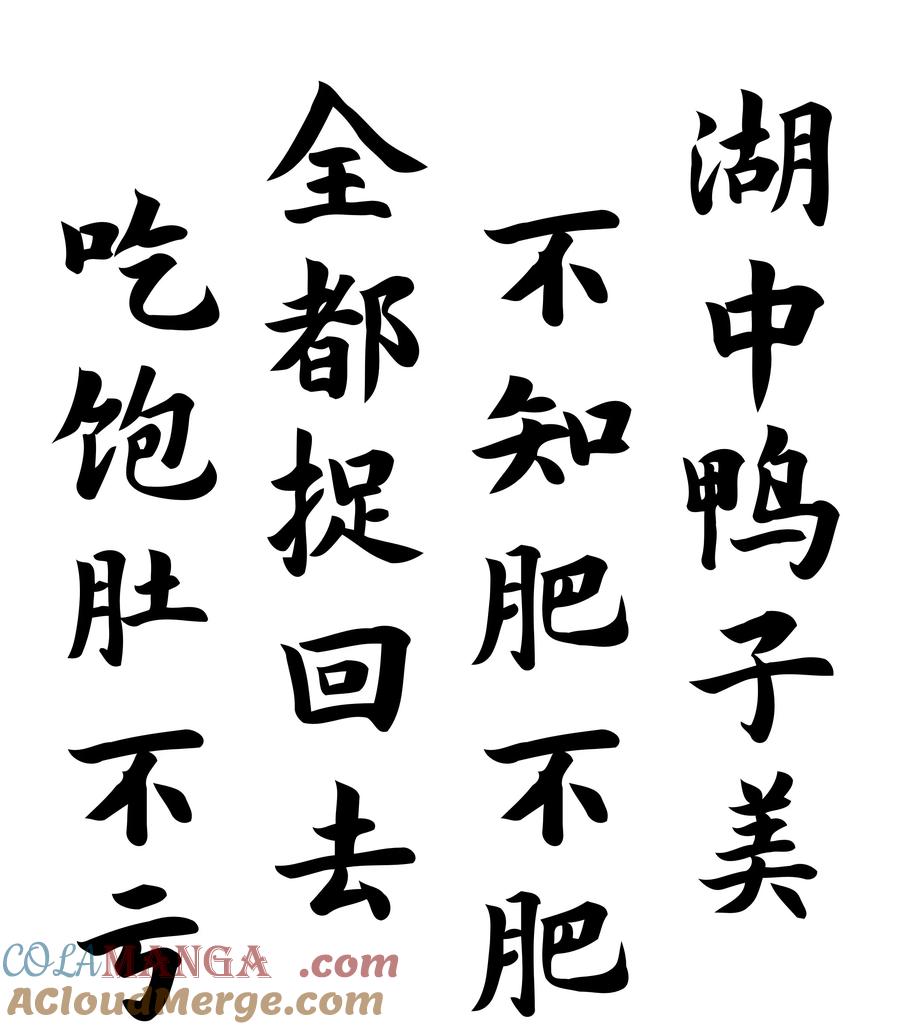 湖中鸭子美
不知肥不肥
全都捉回去
吃饱肚不亏
COLAMANGA .com
ACloudMerge.com